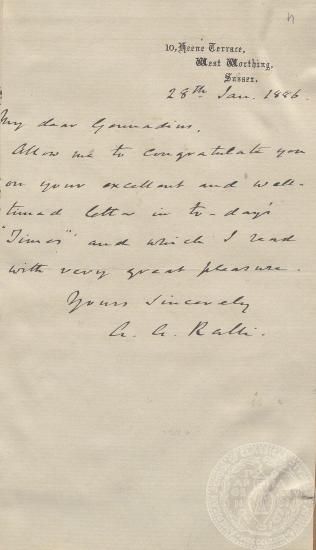 10, Heene Terrace,
West Worthing,
Sussex.
28th Jan. 1886.
My dear Gennadius,
Allow me to congratulate you
on your excellent and well-
timed letter in to-day's
"Times" and which I read
with very great pleasure.
Yours Sincerely
A. A. Ralli.